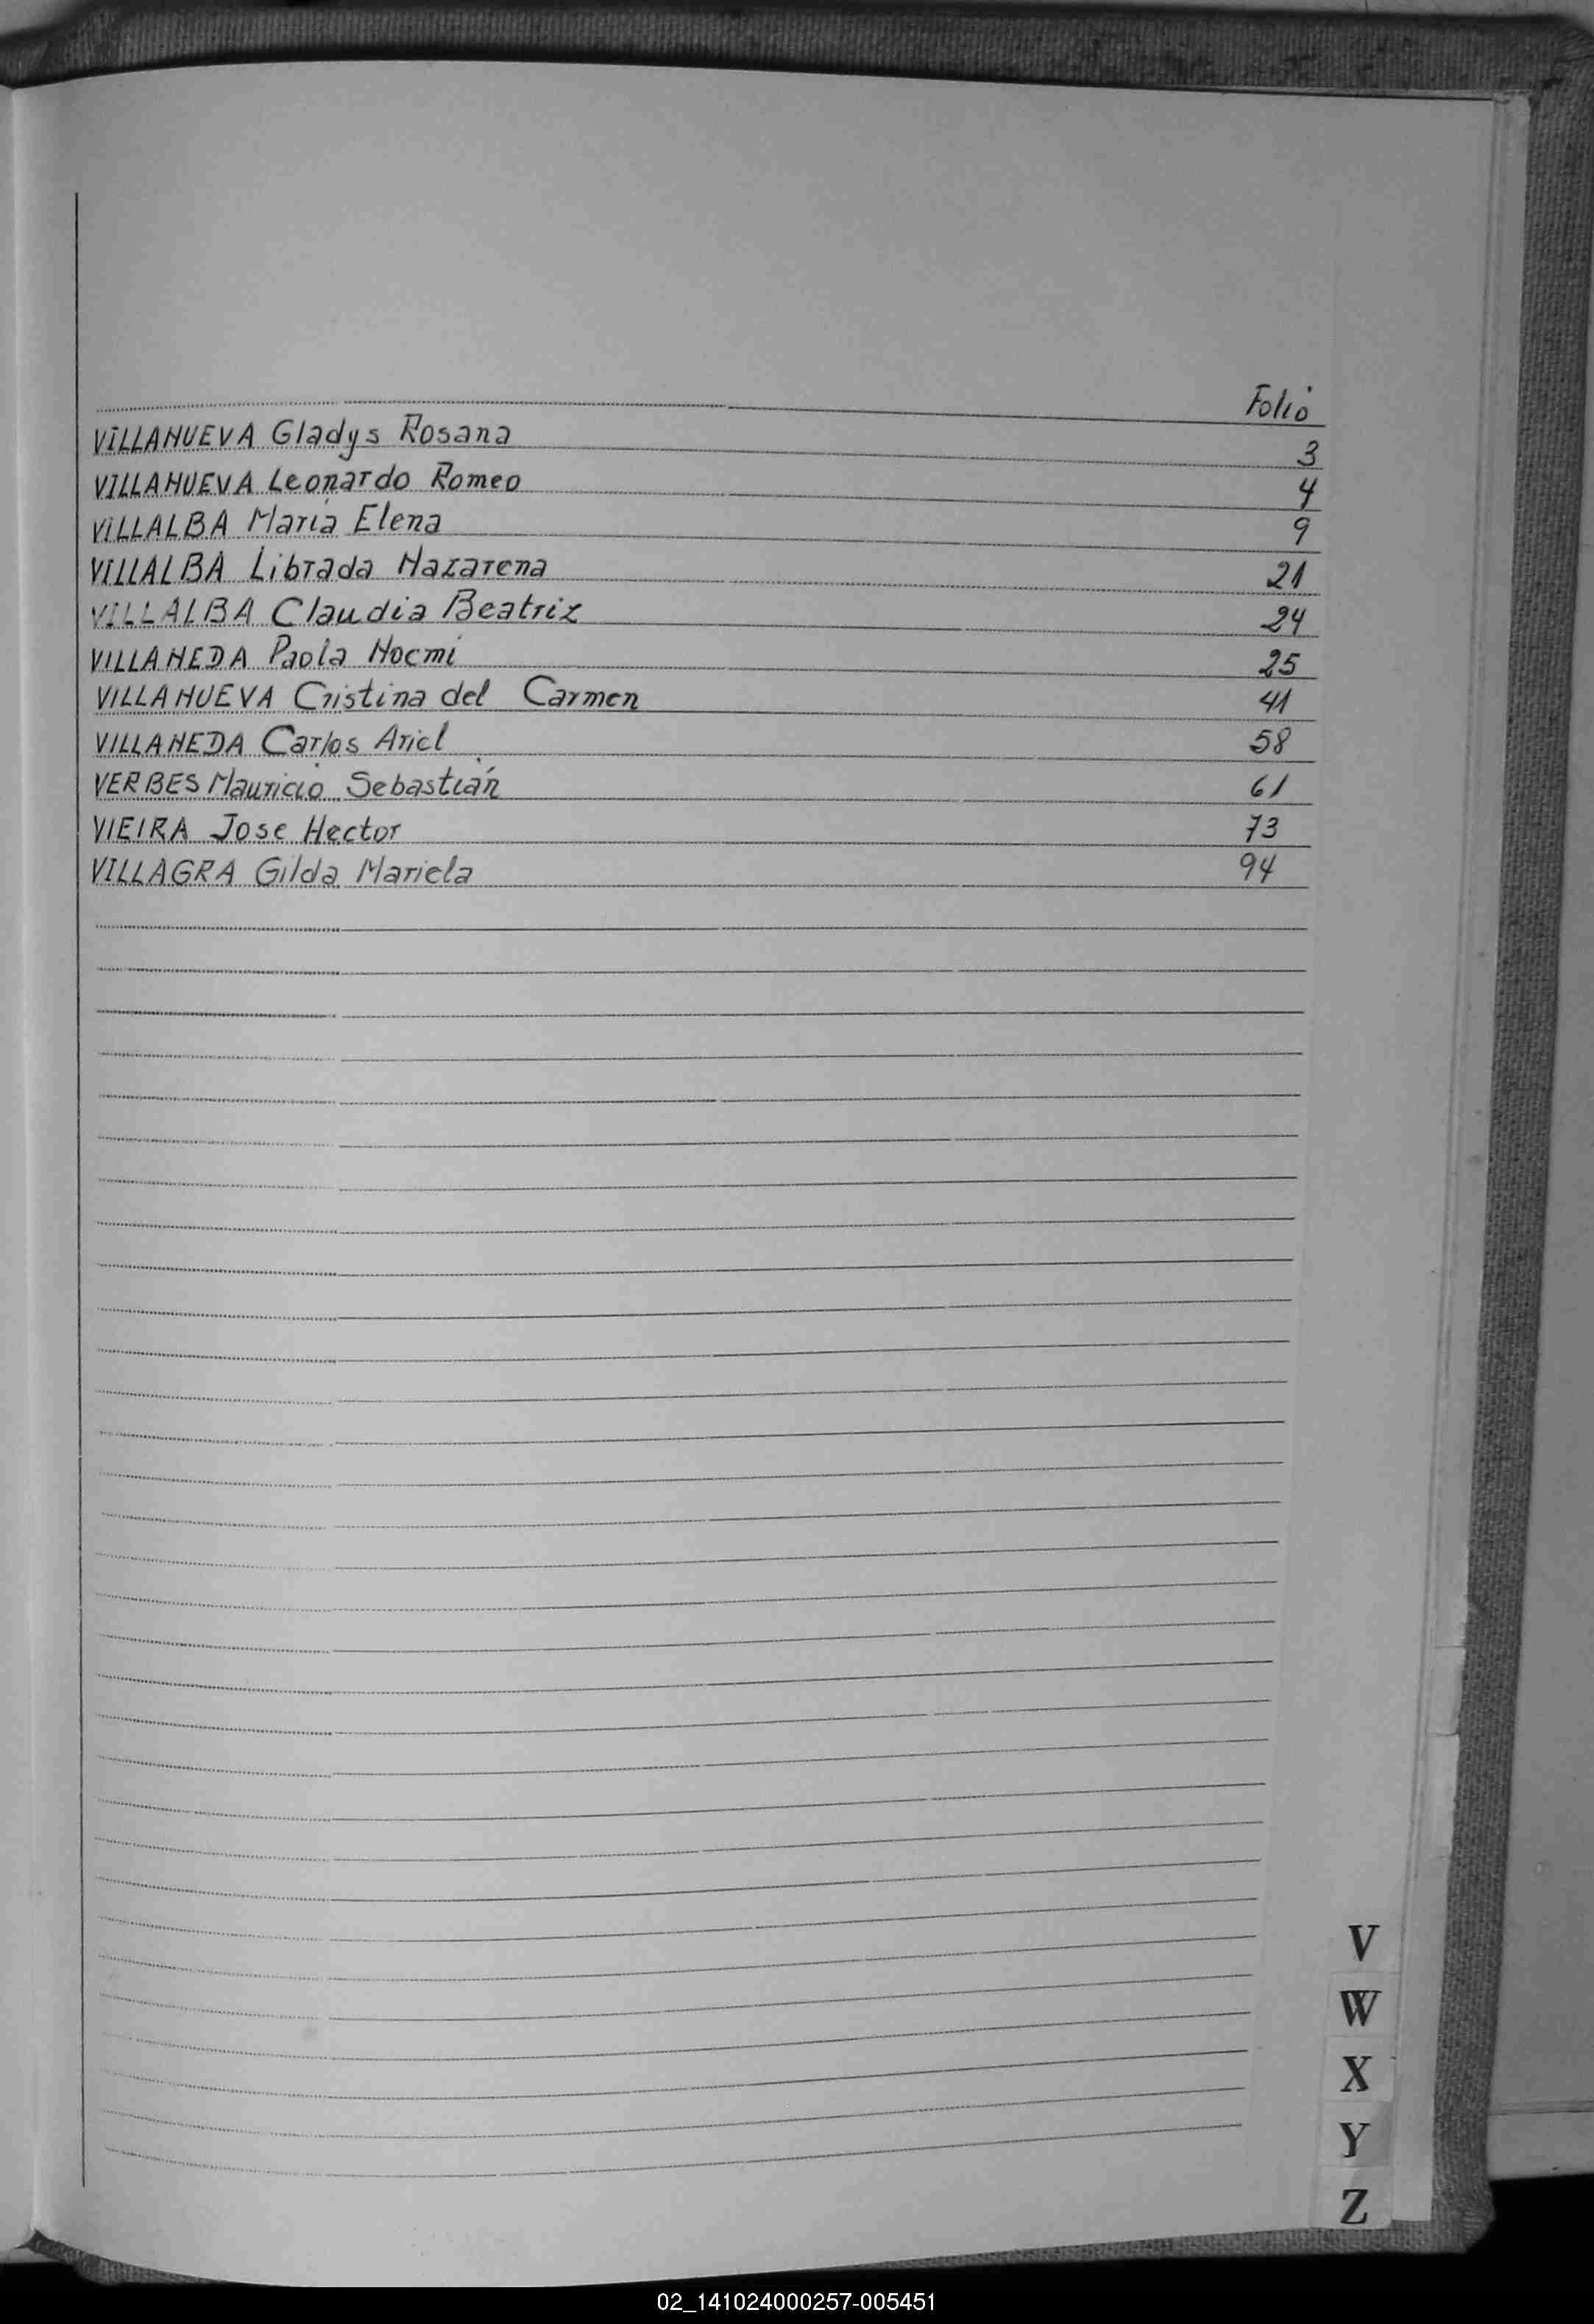 Folio
VILLANUEVA Gladys Rosana 3
VILLANUEVA Leonardo Romeo 4
VILLALBA María Elena 9
VILLALBA Librada Nazarena 21
VILLALBA Claudia Beatriz 24
VILLANEDA Paola Noemi 25
VILLANUEVA Cristina del Carmen 41
VILLANEDA Carlos Ariel 58
VERBES Mauricio Sebastián 61
VIEIRA Jose Hector 73
VILLAGRA Gilda Mariela 94
V
W
X
Y
Z
02_141024000257-005451